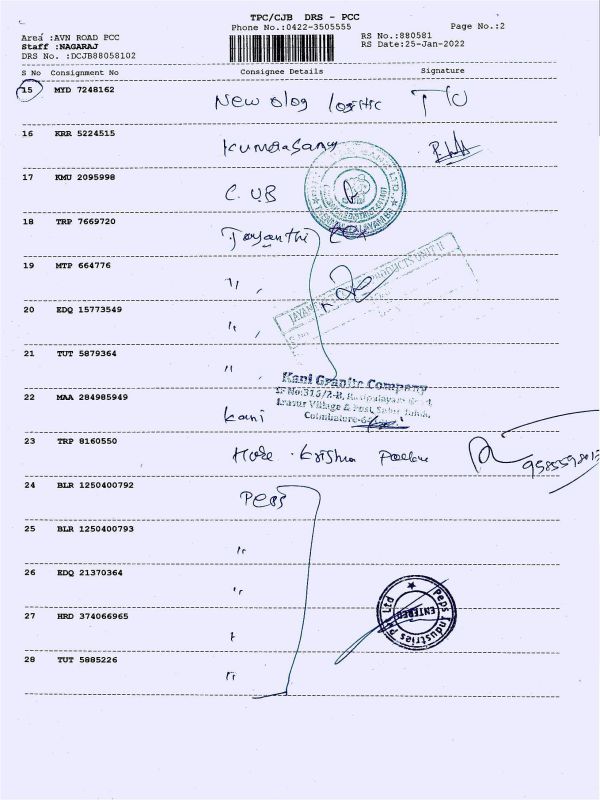 TPC/CJB DRS - PCC
Phone No.:0422-3505555
Page No.:2
Area :AVN ROAD PCC
RS No.:880581
Staff :NAGARAJ
RS Date:25-Jan-2022
DRS No. :DCJB88058102
S No Consignment No Consignee Details Signature
15 MYD 7248162
New
16 KRR 5224515
17 KMU 2095998
C. UB
18 TRP 7669720
Jayanthi
19 MTP 664776
"
20 EDQ 15773549
"
21 TUT 5879364
"
Kani Granite Company
SF No:315/2-B,
22 MAA 284985949
Arasur Village & Post, Sulur Taluk,
Coimbatore-
Kani
23 TRP 8160550
Hare Krishna
24 BLR 1250400792
Peps
25 BLR 1250400793
"
26 EDQ 21370364
"
Peps Industries Pvt Ltd
ENTERED
27 HRD 374066965
28 TUT 5885226
"